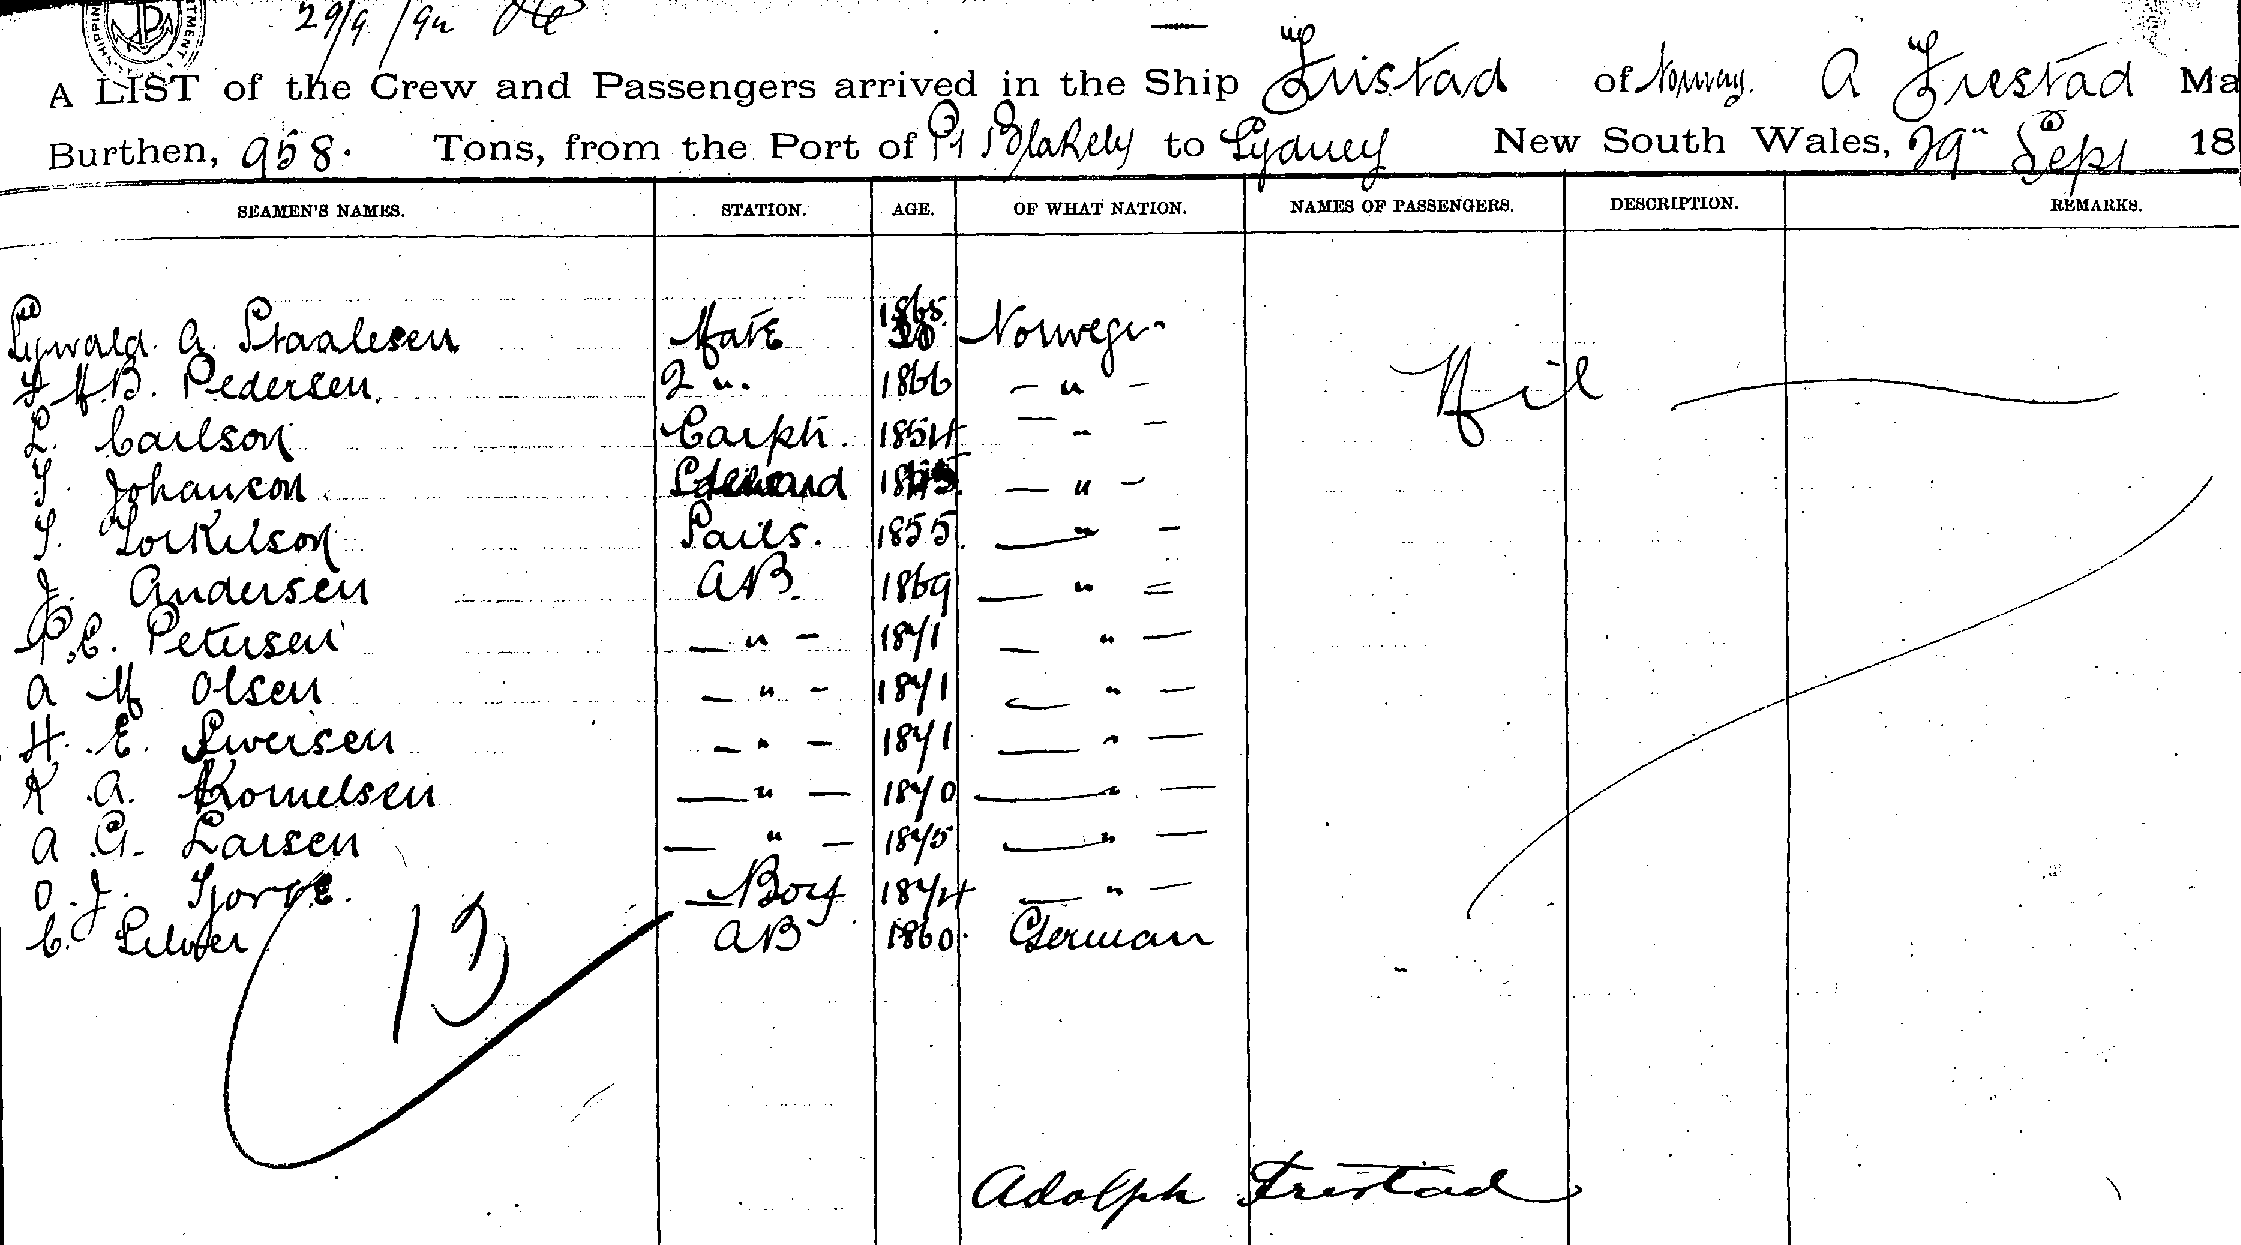 29/9/94
SHIPPING
A LIST of the Crew and Passengers arrived in the Ship Fristad of Norway. A Frestad Ma
Burthen, 958. Tons, from the Port of Pt Blakely to Sydney New South Wales, 29" Sept 18
SEAMEN'S NAMES. STATION. AGE. OF WHAT NATION. NAMES OF PASSENGERS. DESCRIPTION. REMARKS.
A. Staalesen Mate 1865 Norwegn
M B. Pedersen. 2 ". 1866 – " – Nil
L. Carlson Carptr. 1854 – " –
T. Johanson Steward – " –
T. Torkilson Sails. 1855 – " –
J. Andersen AB. 1869 – " –
P. C. Petersen – " – 1871 – " –
A M Olsen – " – 1871 – " –
H. E. Siversen – " – 1871 – " –
K A. Kornelsen – " – 1870 – " –
A G. Larsen – " – 1875 – " –
O. J. Boy 1874 – " –
C. Silver AB 1860. German
13
Adolph Fristad